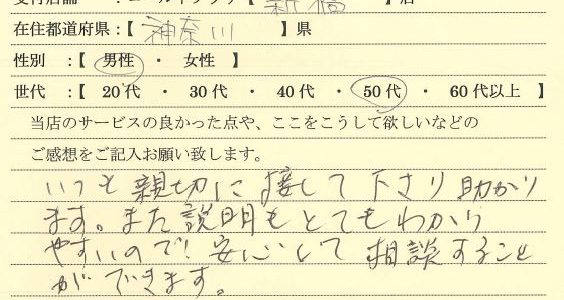 新橋】店
在住都道府県:【 神奈川 】県
性別 :【 男性 ・ 女性 】
世代 :【 20代 ・ 30代 ・ 40代 ・ 50代 ・ 60代以上 】
当店のサービスの良かった点や、ここをこうして欲しいなどの
ご感想をご記入お願い致します。
いつも親切に接して下さり助かり
ます。また説明もとてもわかり
やすいので!安心して相談すること
ができます。